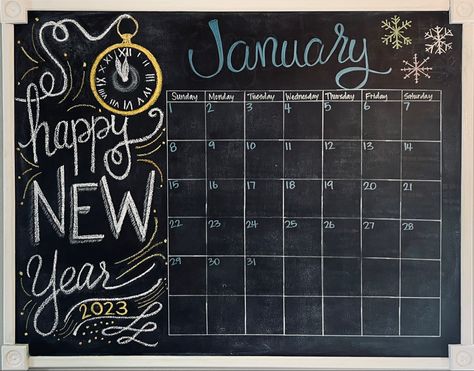 happy
NEW
Year
2023
January
Sunday Monday Tuesday Wednesday Thursday Friday Saturday
1 2 3 4 5 6 7
8 9 10 11 12 13 14
15 16 17 18 19 20 21
22 23 24 25 26 27 28
29 30 31